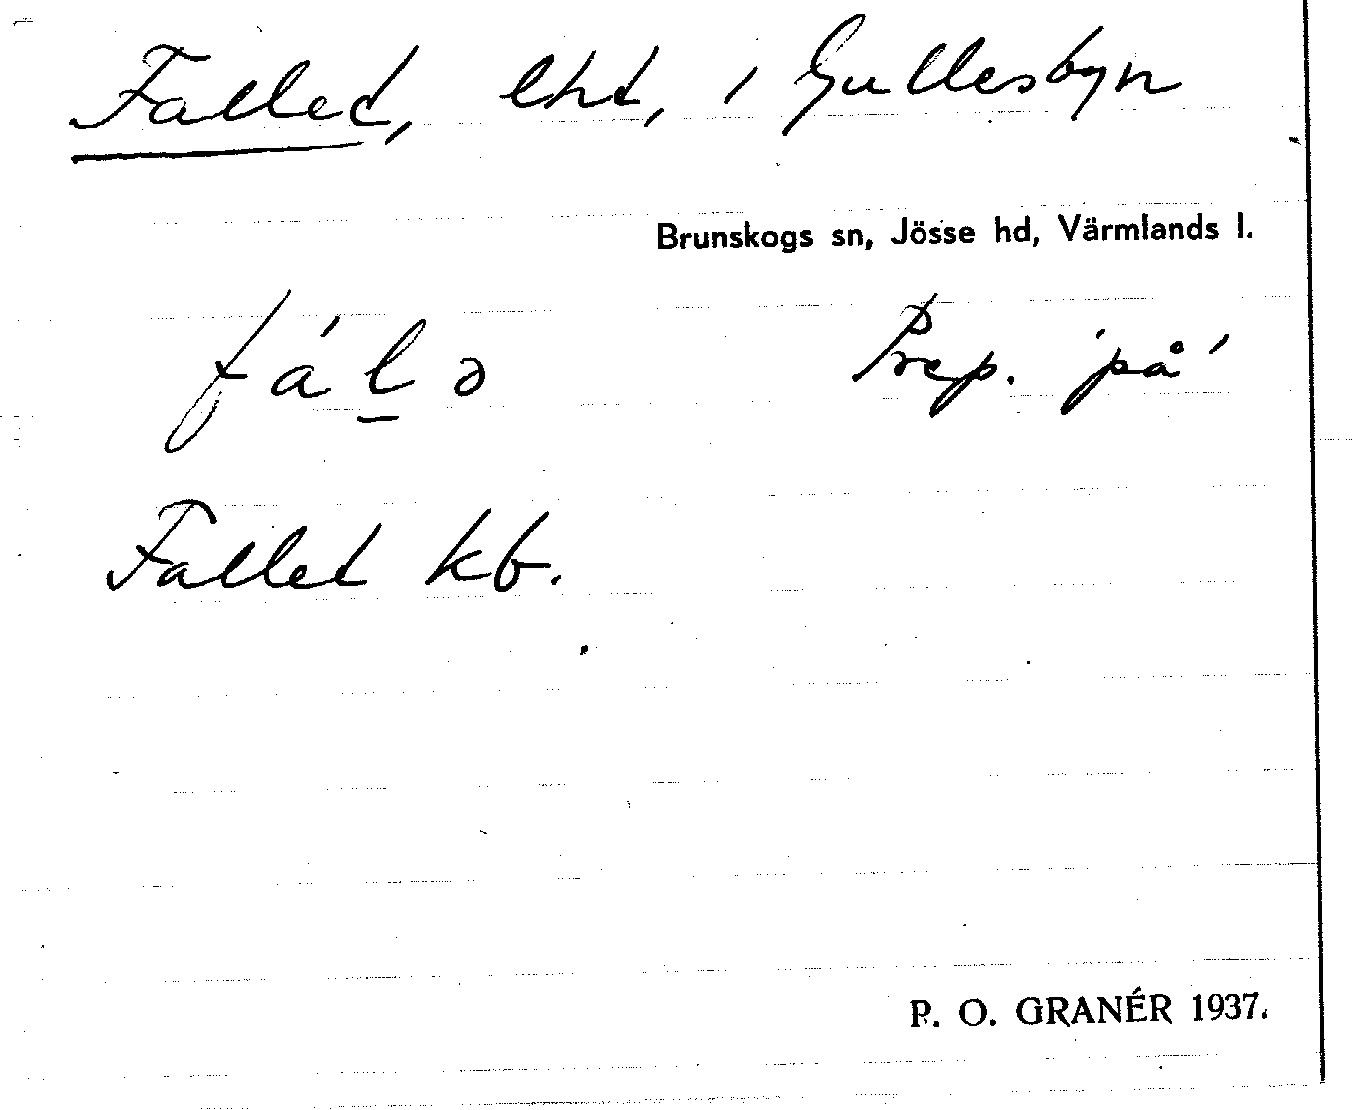 Fallet, lht, i Gullesbyn
Brunskogs sn, Jösse hd, Värmlands l.
fál̲ə Prep. 'på'
Fallet kb.
P. O. GRANÉR 1937.